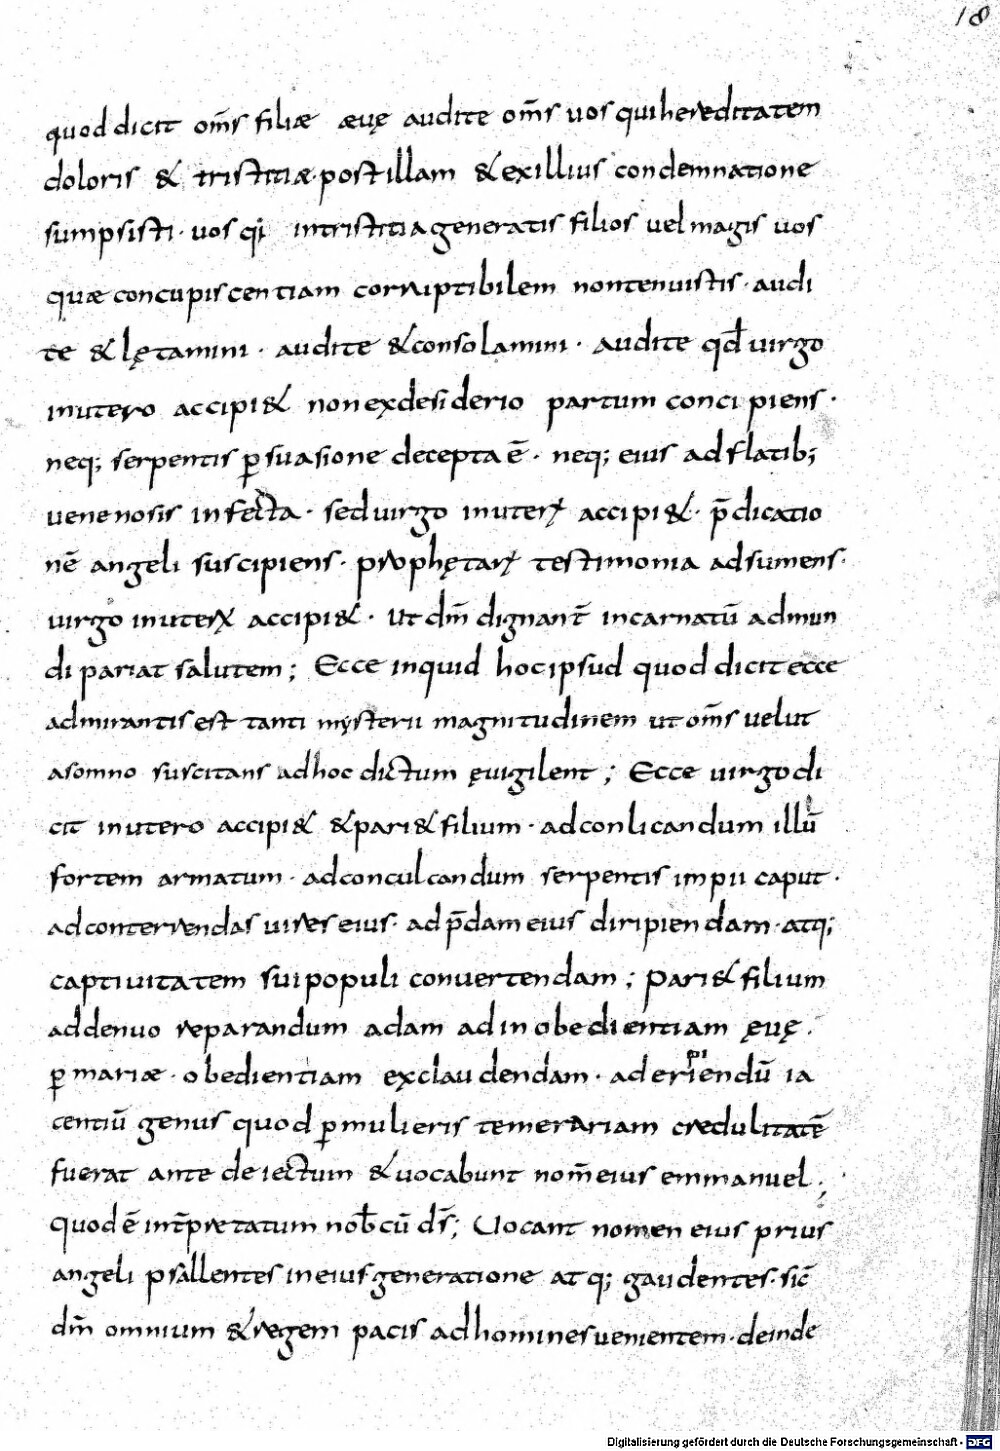 18
quod dicit om̅s filiæ æuę audite om̅s uos qui hereditatem
doloris & tristitiæ· post illam & ex illius condemnatione
sumpsisti· uos qi in tristitia generatis filios uel magis uos
quæ concupiscentiam corruptibilem non tenuistis· audi
te & lętamini· audite & consolamini· audite qđ uirgo
in utero accipi& non ex desiderio partum concipiens·
neq; serpentis ꝑsuasione decepta ē· neq; eius adflatib;
uenenosis infecta· sed uirgo in uterꝛ accipi&· p̄dicatio
nē angeli suscipiens· prophętarꝝ testimonia adsumens·
uirgo in uterꝛ accipi&· Ut dm̄ dignant̄ incarnatū ad mun
di pariat salutem; Ecce inquid hoc ipsud quod dicit ecce
admirantis est tanti mysterii magnitudinem ut om̅s uelut
a somno suscitans ad hoc dictum ęuigilent; Ecce uirgo di
cit in utero accipi& & pari& filium· ad conlicandum illū
fortem armatum· ad conculcandum serpentis impii caput·
ad conterrendas uires eius· ad p̄dam eius diripiendam· atq;
captiuitatem sui populi conuertendam; Pari& filium
ad denuo reparandum adam ad inobedientiam ęuę·
ꝑ mariæ· obedientiam excludendam· ad eripiendū ia
centiū genus quod ꝑ mulieris temerariam credulitatē
fuerat ante deiectum & uocabunt nom̄ eius emmanuel·;
quod ē int̄pretatum nob̄cū ds̄; Uocant nomen eius prius
angeli psallentes in eius generatione atq; gaudentes· sic̄
dm̄ omnium & regem pacis ad homines uenientem· deinde
Digitalisierung gefördert durch die Deutsche Forschungsgemeinschaft - DFG